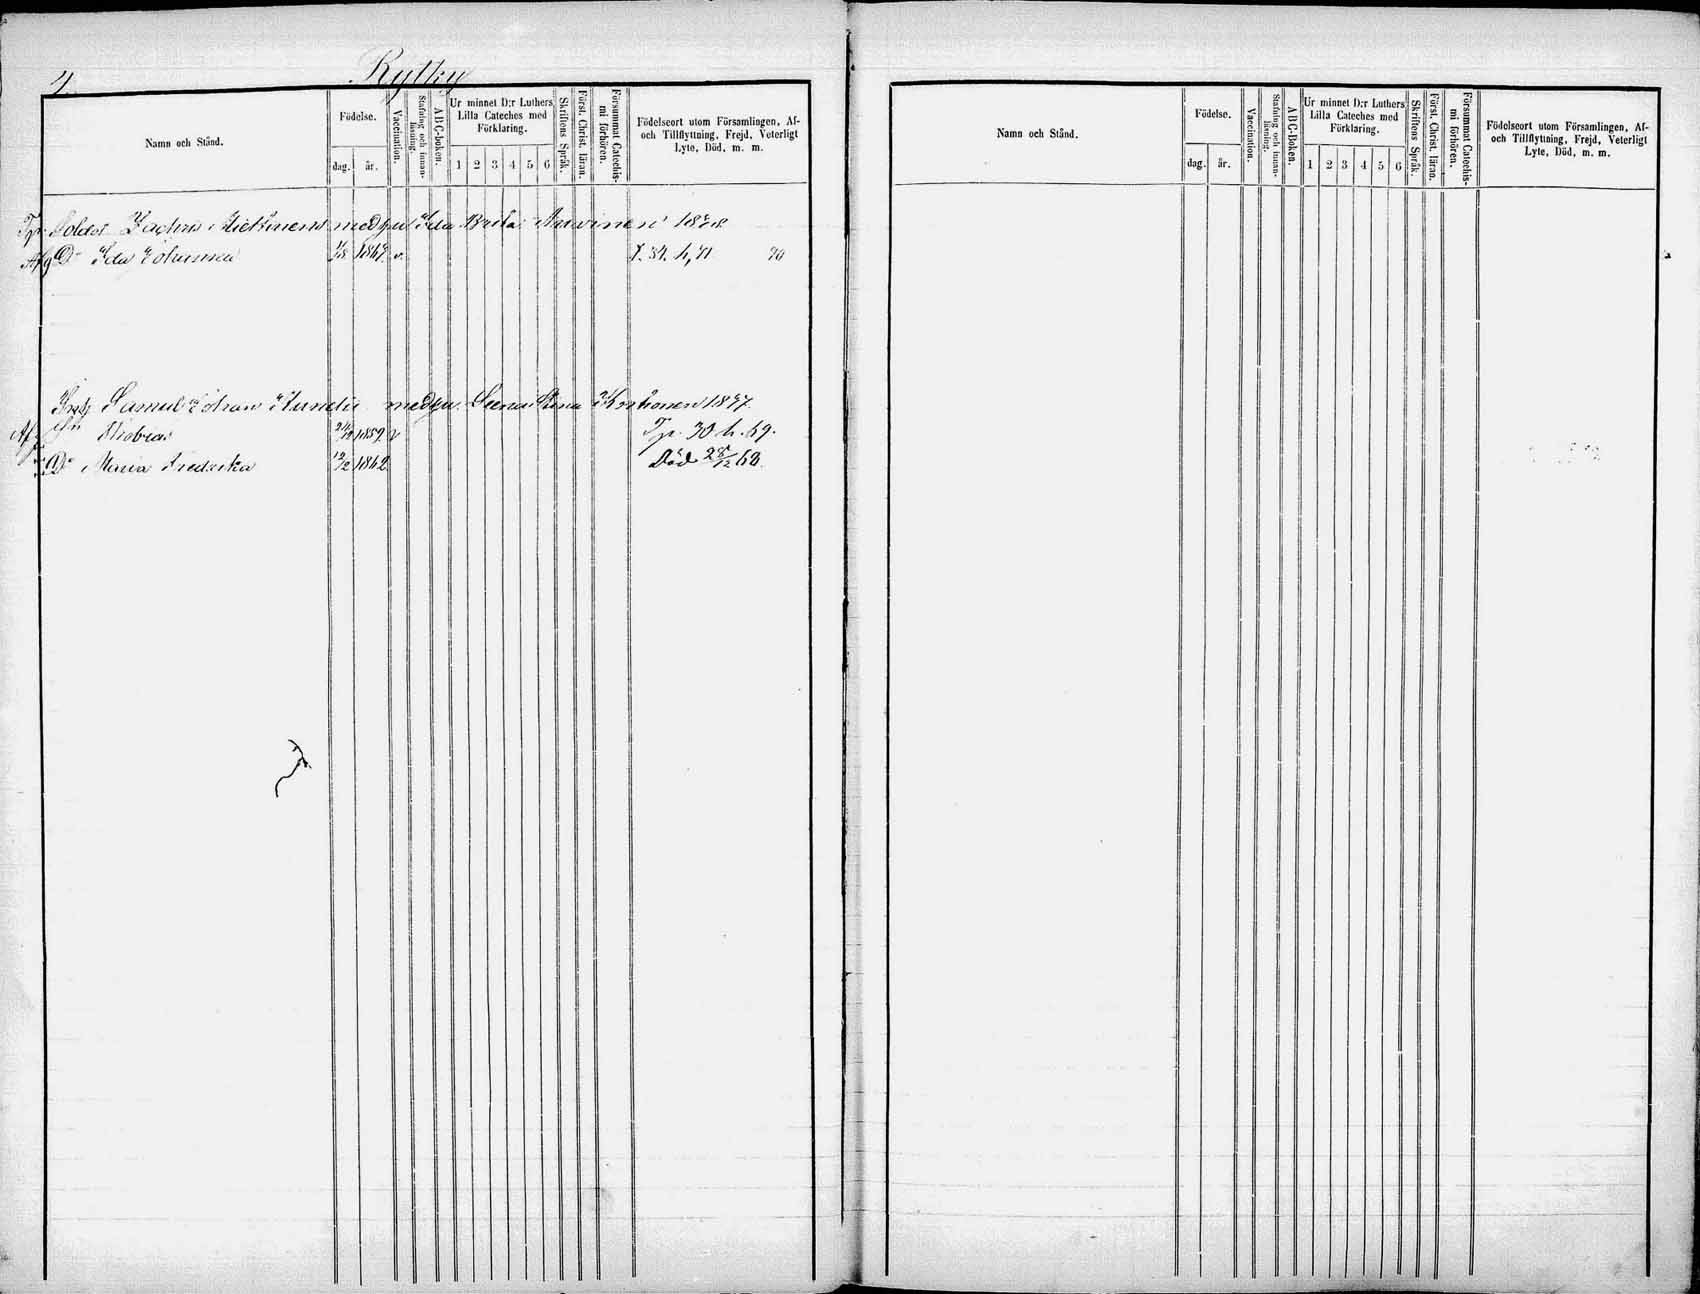 4
Rytky
Namn och Stånd.
Födelse.
dag.
år.
Vaccination.
Stafning och innan-
läsning.
ABC-boken.
Ur minnet D:r Luthers
Lilla Cateches med
Förklaring.
1 2 3 4 5 6
Skriftens Språk.
Först. Christ. läran.
Försummat Catechis-
mi förhören.
Födelseort utom Församlingen, Af-
och Tillflyttning, Frejd, Veterligt
Lyte, Död, m. m.
Soldat Zachris Miettinens med hu Ida Brita
Dr Ida Johanna 1867 v. 70
Samuel Johan med hu
Tobias 1859 v Tp. 30 h. 69.
Dr Maria Fredrika 12/2 1862 Död 28/12 68.
Namn och Stånd.
Födelse.
dag.
år.
Vaccination.
Stafning och innan-
läsning.
ABC-boken.
Ur minnet D:r Luthers
Lilla Cateches med
Förklaring.
1 2 3 4 5 6
Skriftens Språk.
Först. Christ. läran.
Försummat Catechis-
mi förhören.
Födelseort utom Församlingen, Af-
och Tillflyttning, Frejd, Veterligt
Lyte, Död, m. m.